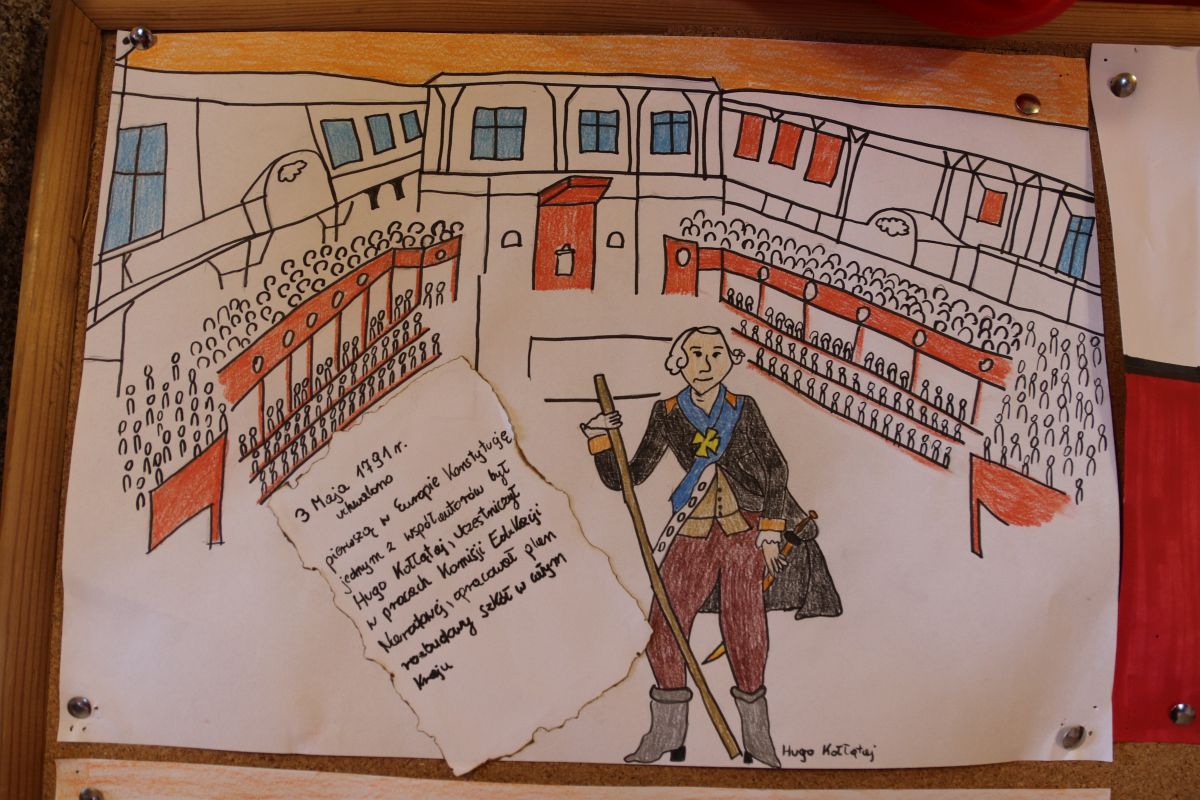 3 Maja 1791 r.
uchwalono
pierwszą w Europie Konstytucję
jednym z współautorów był
Hugo Kołłątaj, uczestniczył
w pracach Komisji Edukacji
Narodowej, opracował plan
rozbudowy szkół w całym
kraju
Hugo Kołłątaj